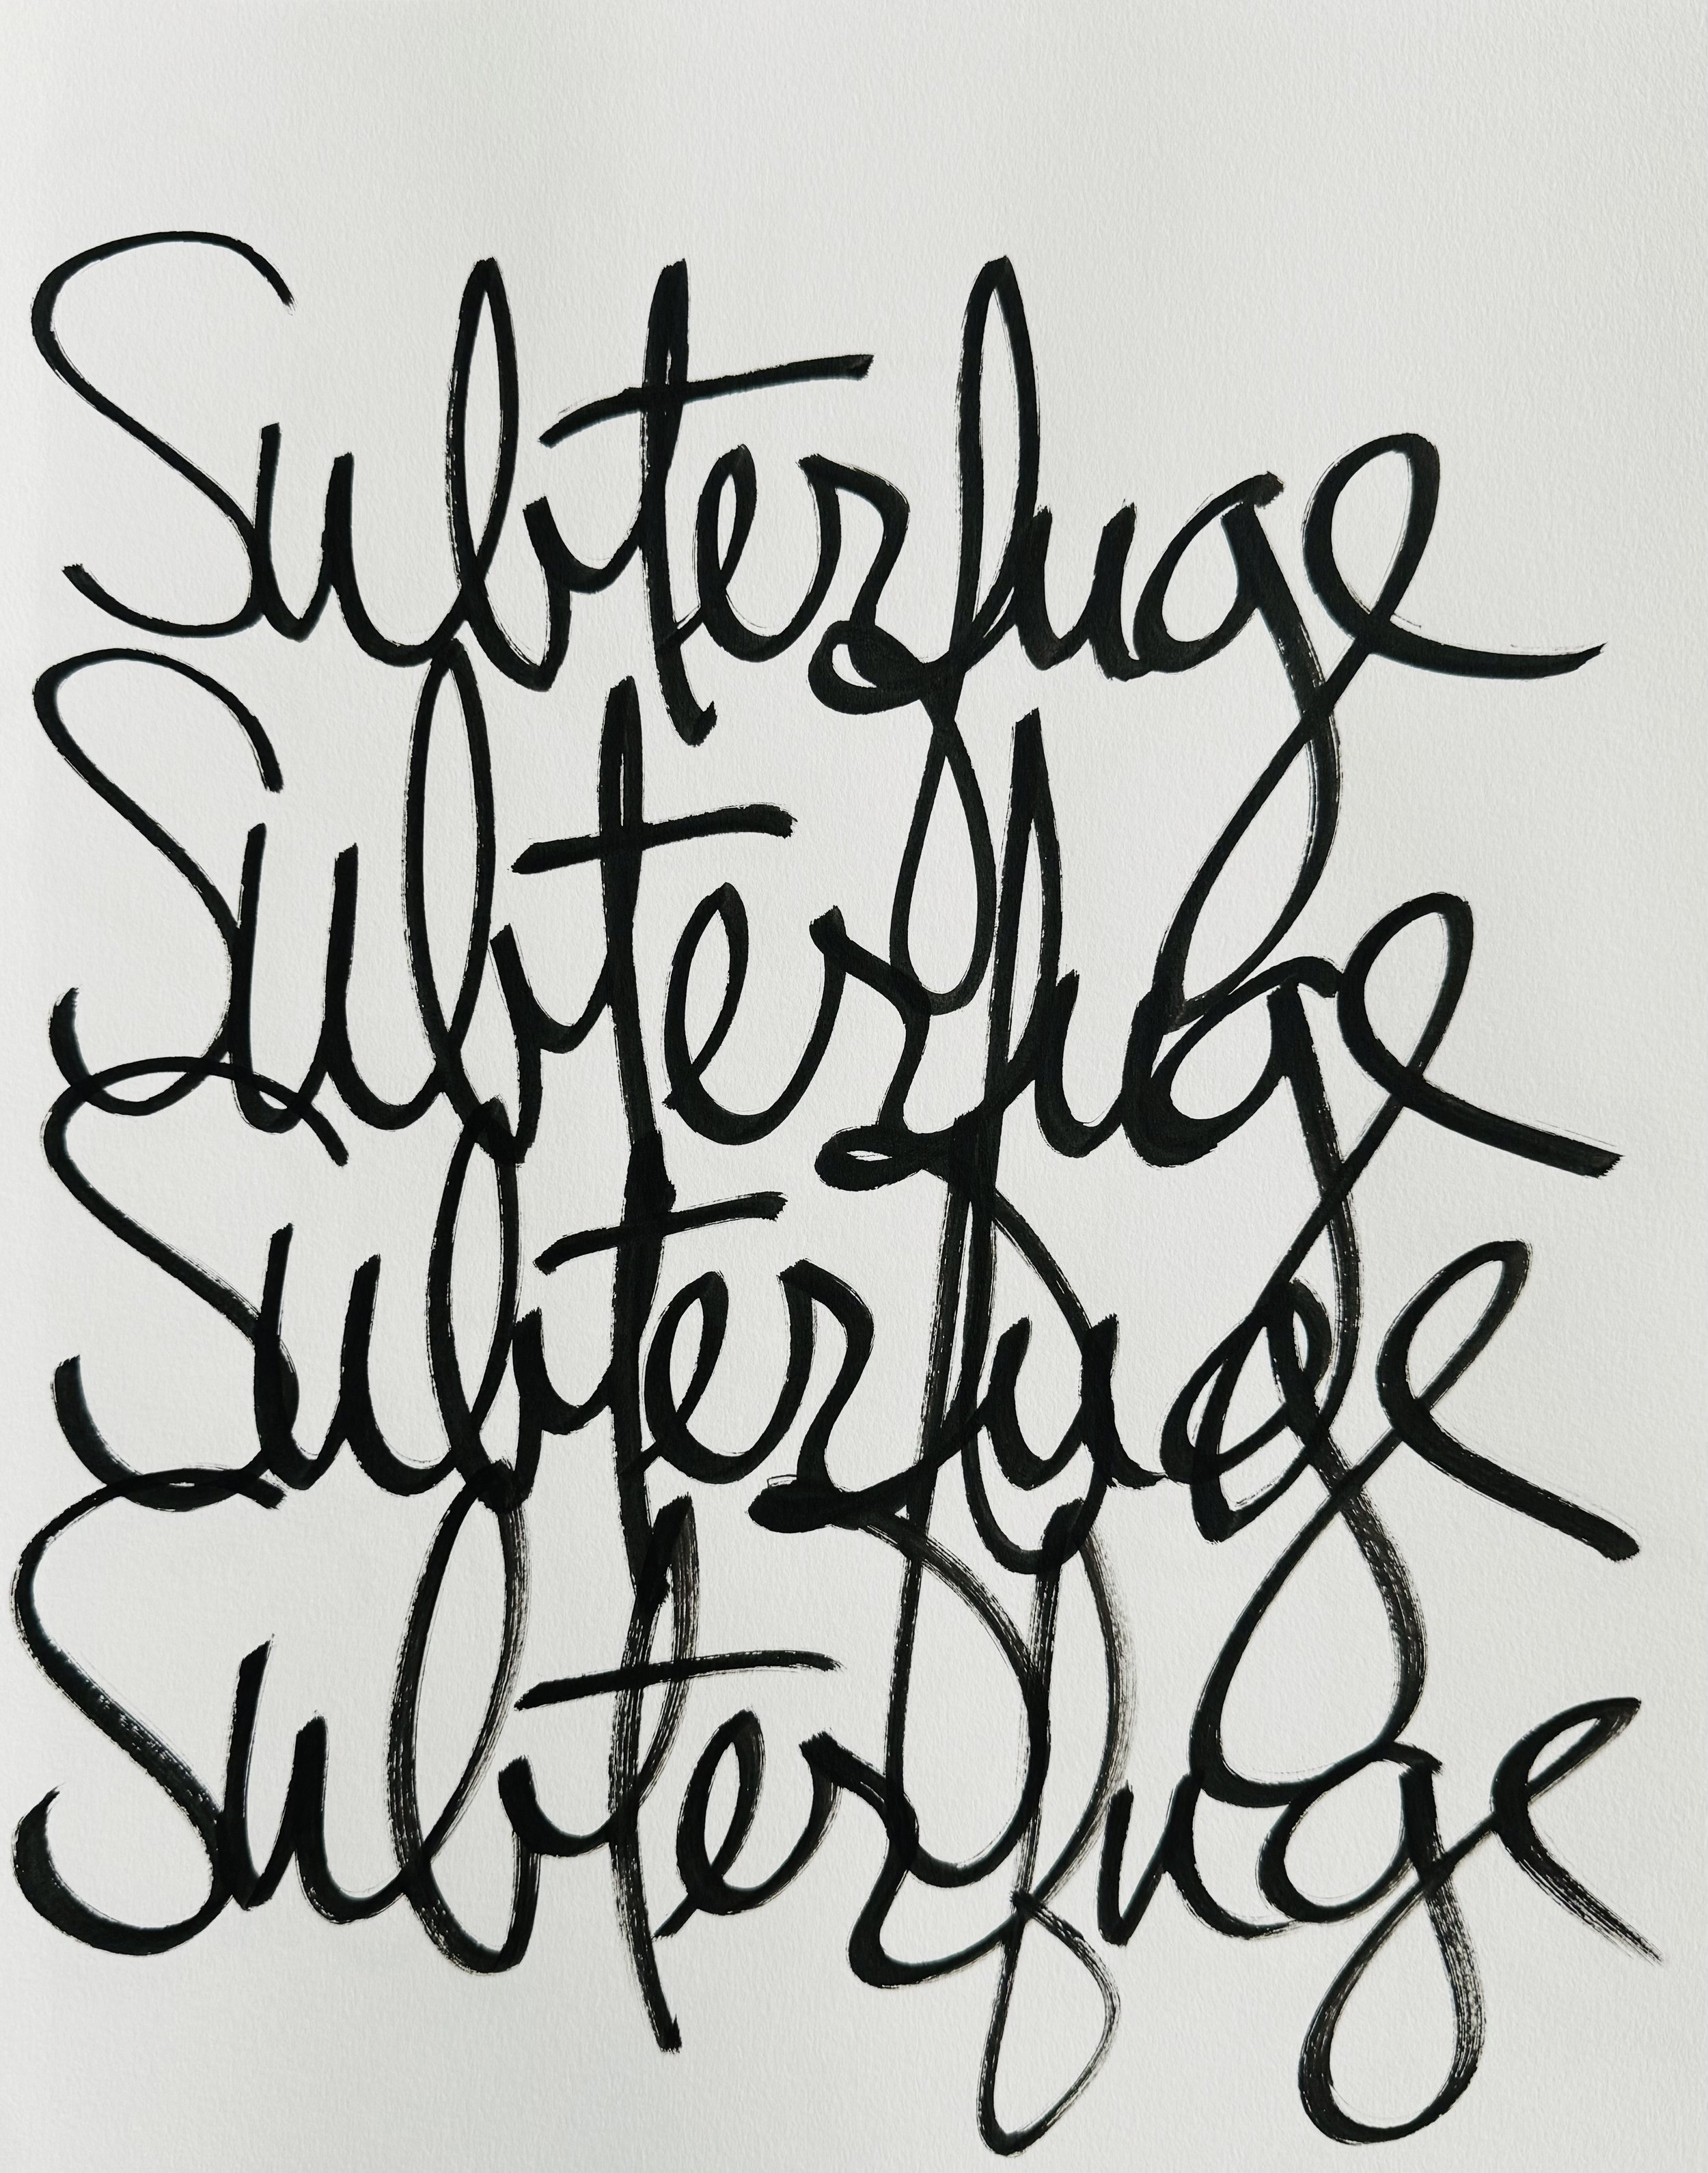 Subterfuge
Subterfuge
Subterfuge
Subterfuge